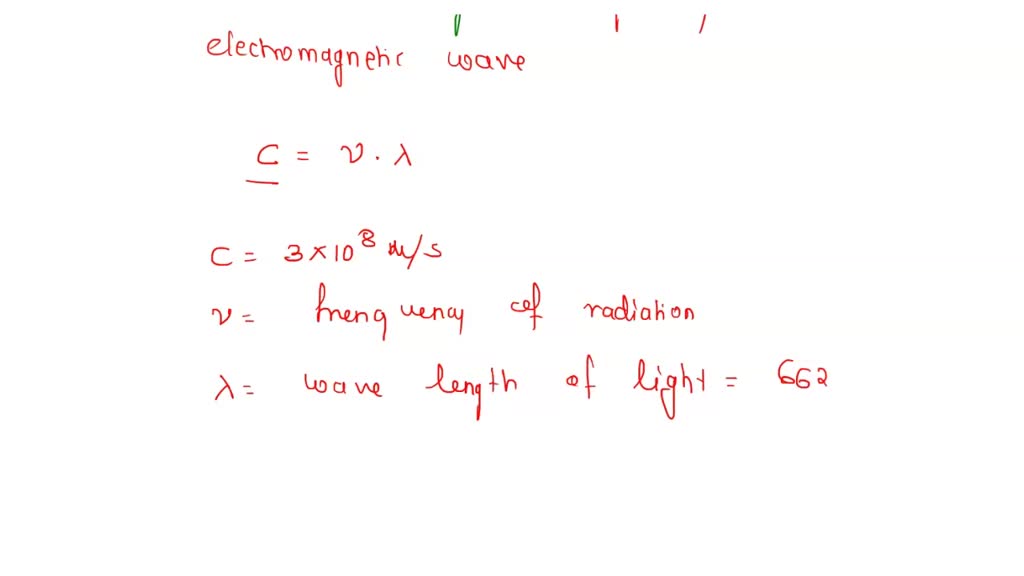 electromagnetic wave
C = ν . λ
C = 3 × 10⁸ m/s
ν = frenquency of radiation
λ = wave length of light = 662